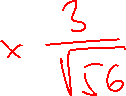 × \frac{3}{\sqrt{56}}